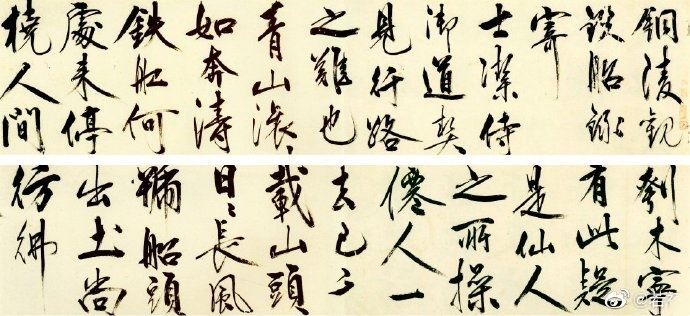 銅陵觀
鐵船錄
寄
士潔侍
御道契
見行路
之難也
青山滾〻
如奔濤
鉄船何
處来停
橈人間
刳木寧
有此疑
是仙人
之所操
僊人一
去已千
載山頭
日〻長風
號船頭
出土尚
彷彿